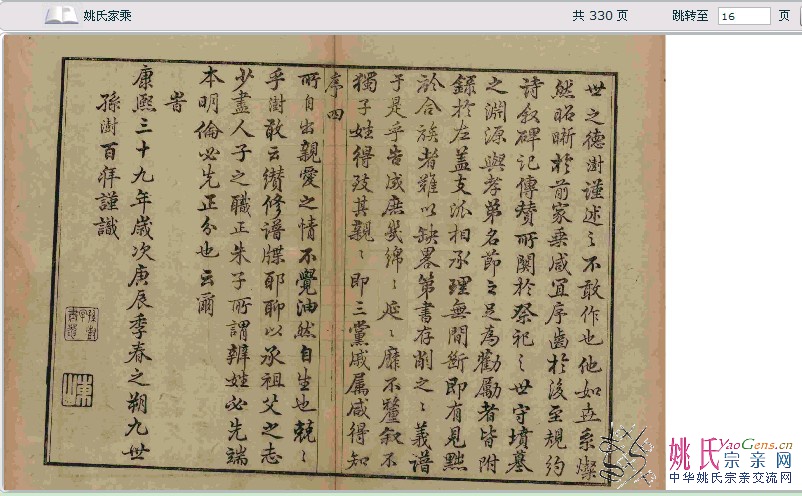 姚氏家乘
共 330 页
跳转至 16 页
世之德澍谨述之不敢作也他如世系燦
然昭晰於前家乗咸宜序齒於後至規約
诗叙碑記傳賛所關於祭祀之世守墳墓
之淵源與孝第名節之足為勸勵者皆附
錄於左盖支派相承理無間断即有見黜
於合族者難以缺畧第書存削之之義譜
于是乎告成庶幾綿之延之靡不釐叙不
獨子姓得歧其親之即三黨戚属咸得知
序四
所自出親愛之情不覺油然自生也兢之
乎澍敢云纉修谱牒耶聊以承祖父之志
少盡人子之職正朱子所謂辨姓必先端
本明倫必先正分也云爾
旹
康熙三十九年歲次庚辰季春之朔九世
孫澍百拜謹識
姚氏YaoGens.cn
宗亲网
中华姚氏宗亲交流网